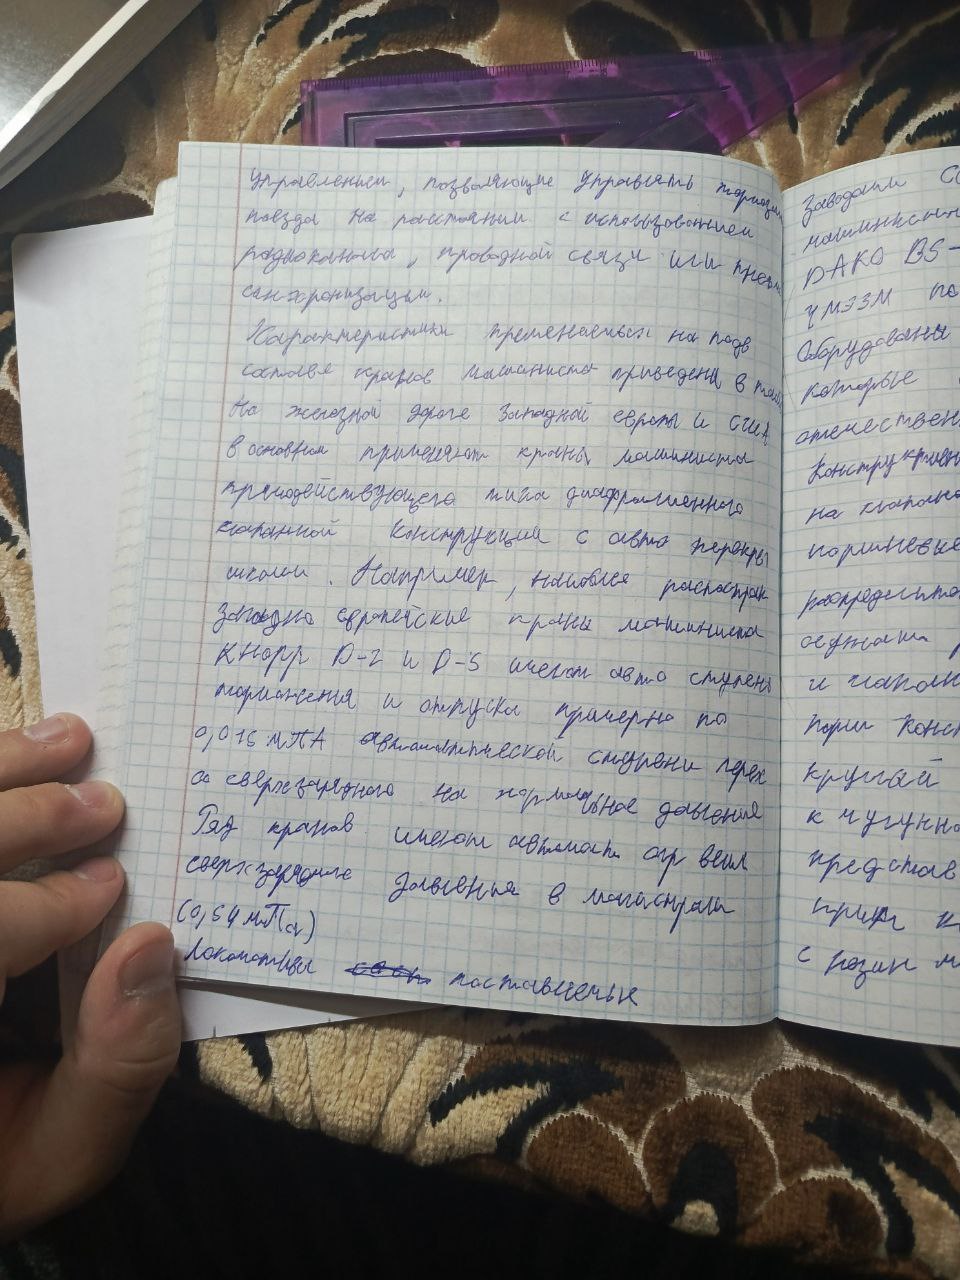 управлением, позволяющие управлять тормозам
поезда на расстоянии с использованием
радиоканала, проводной связи или пневм
синхронизации.
Характеристики применяемых на подв
составе кранов машиниста приведены в табл
На железной дороге Западной европы и США
в основном применяют краны машиниста
прямодействующего типа диафрагменного
клапанной конструкции с авто перекры
шками. Например, наиболее распостран
западно европейские краны машиниста
КНорр D-2 и D-5 имеют авто ступень
торможения и отпуска примерно по
0,015 мПА автоматической ступени перех
со сверхзарядного на нормальное давление
Ряд кранов имеют автомат. огр вел
сверхзарядного давления в магистрали
(0,64 мПа)
Локомотивы поставленые
Заводами СС
машинист
DAKO BS-
ЧМЭ3М по
Оборудованы
которые
отечествен
Конструктивн
на клапано
поршневые
распределител
седлам
и клапан
При конст
кругай
к чугунно
представ
при к
с резин м